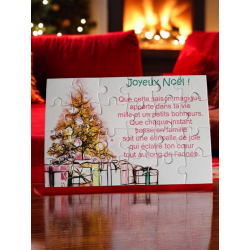 Joyeux Noël !
Que cette saison magique
apporte dans ta vie
mille et un petits bonheurs.
Que chaque instant
passé en famille
soit une étincelle de joie
qui éclaire ton cœur
tout au long de l'année.